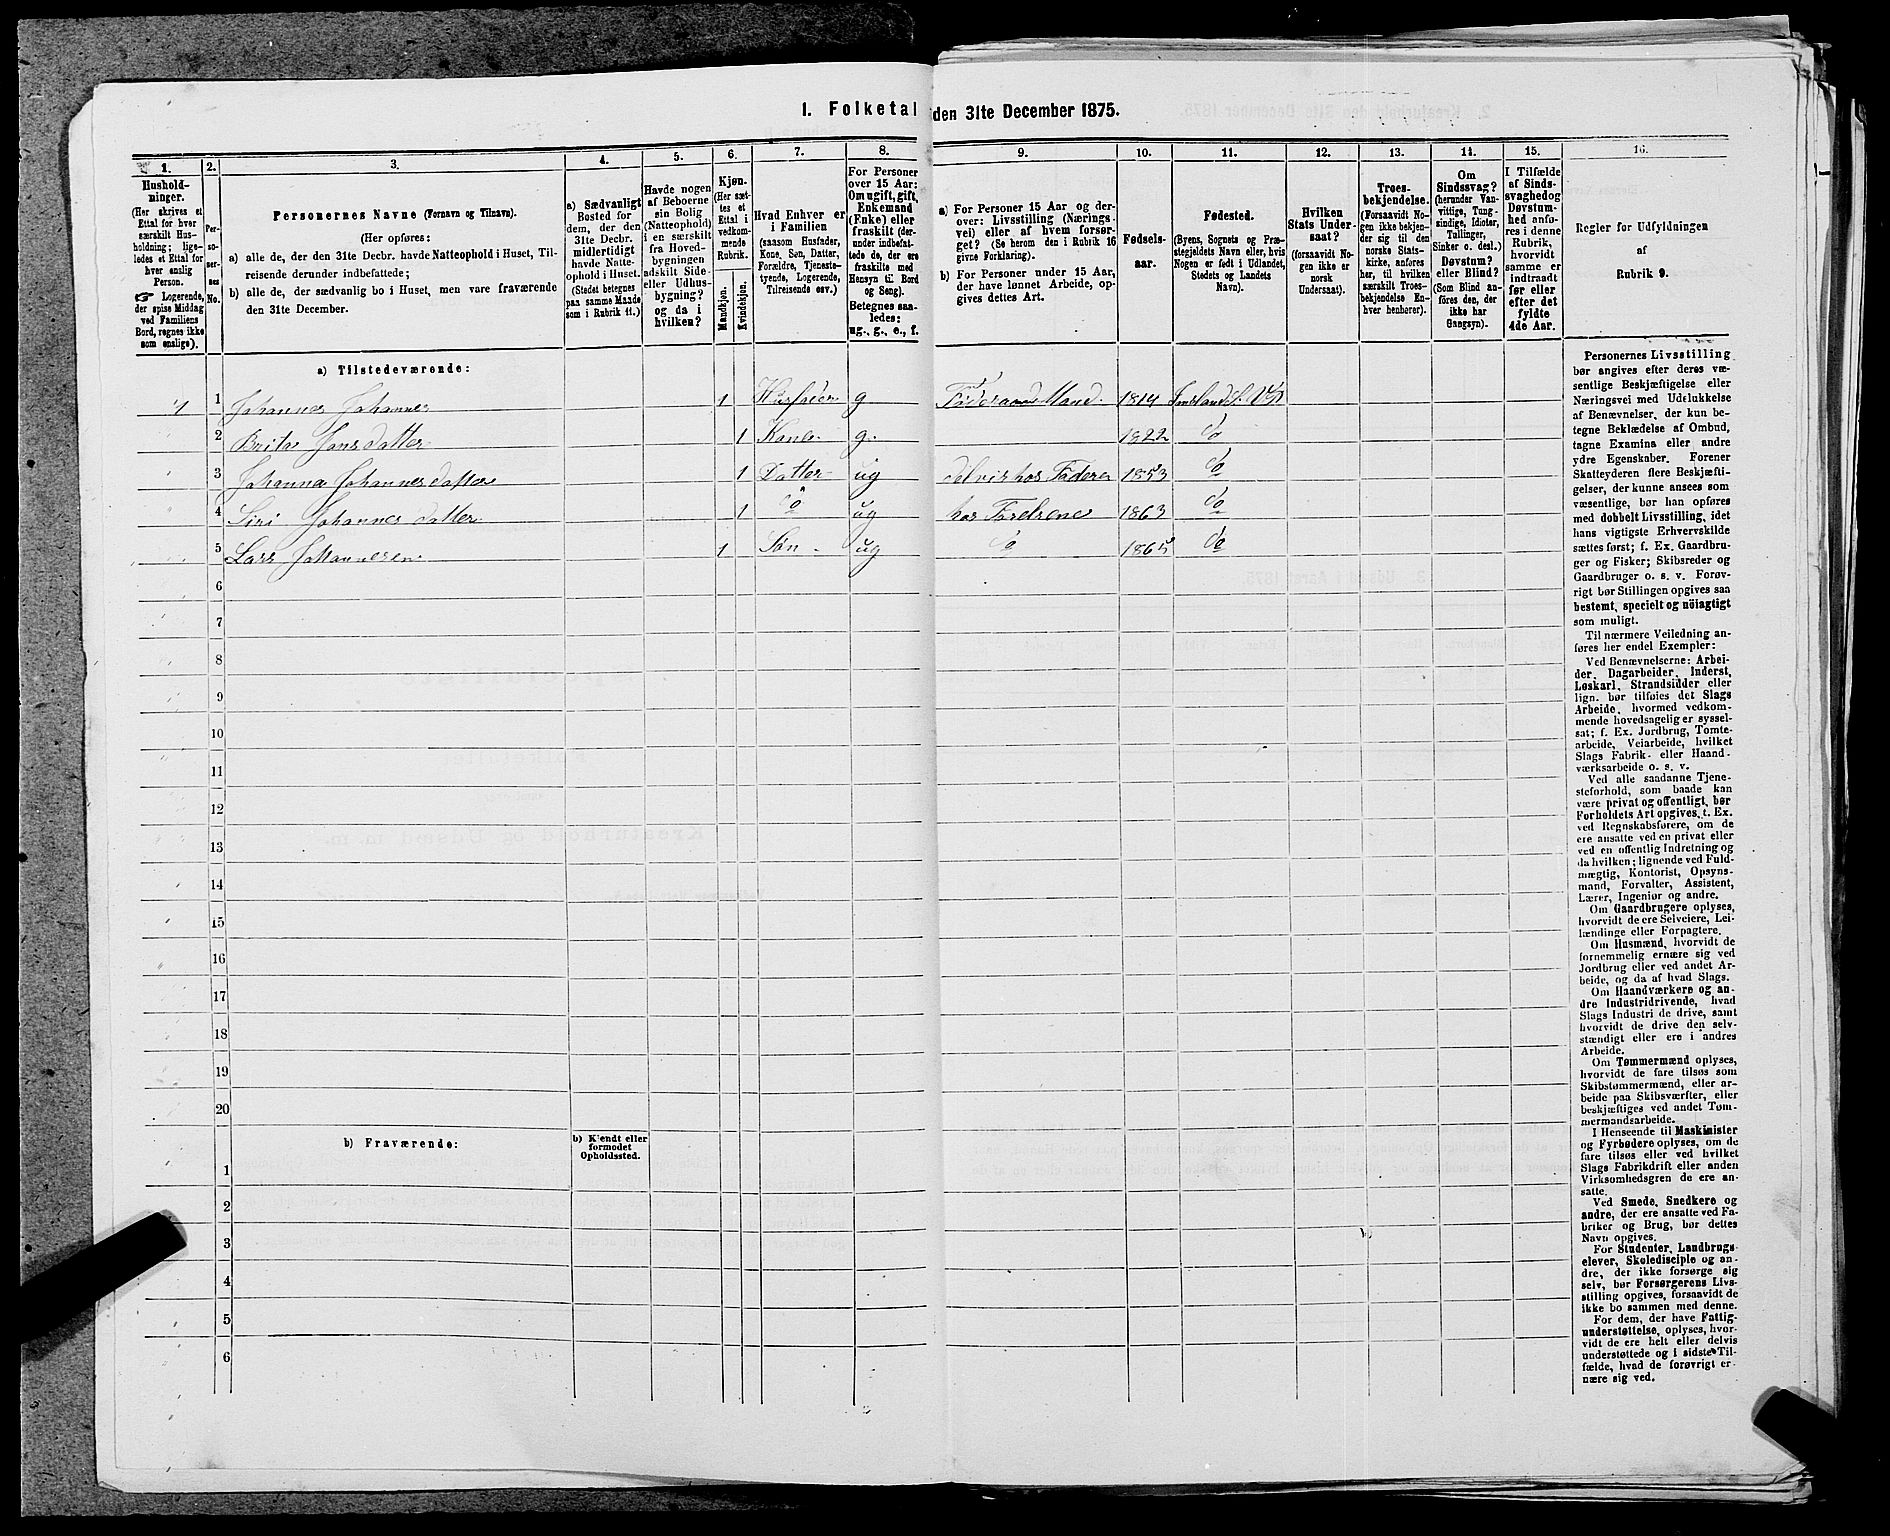 1. Folketal
den 31te December 1875.
1.
2.
3.
4.
5.
6.
7.
8.
9.
10.
11.
12.
13.
14.
15.
16.
Hushold-
ninger.
(Her skrives et
Ettal for hver
særskilt Hus-
holdning; lige-
ledes et Ettal for
hver enslig
Person.
☞ Logerende,
der spise Middag
ved Familiens
Bord, regnes ikke
som enslige).
Per-
so-
ner-
nes
No.
Personernes Navne (Fornavn og Tilnavn).
(Her opføres:
a) alle de, der den 31te Decbr. havde Natteophold i Huset, Til-
reisende derunder indbefattede;
b) alle de, der sædvanlig bo i Huset, men vare fraværende
den 31te December.
a) Sædvanligt
Bosted for
dem, der den
31te Decbr.
midlertidigt
havde Natte-
ophold i Huset.
(Stedet betegnes
paa samme Maade
som i Rubrik 11.)
Havde nogen
af Beboerne
sin Bolig
(Natteophold)
i en særskilt
fra Hoved-
bygningen
adskilt Side-
eller Udhus-
bygning?
og da i
hvilken?
Kjøn.
(Her sæt-
tes et
Ettal i
vedkom-
mende
Rubrik.
Mandkjøn.
Kvindekjøn.
Hvad Enhver er
i Familien
(saasom Husfader,
Kone, Søn, Datter,
Forældre, Tjeneste-
tyende, Logerende,
Tilreisende osv.)
For Personer
over 15 Aar:
Om ugift, gift,
Enkemand
(Enke) eller
fraskilt (der-
under indbefat-
tede de, der ere
fraskilte med
Hensyn til Bord
og Seng).
Betegnes saa-
ledes:
ug., g., e., f.
a) For Personer 15 Aar og der-
over: Livsstilling (Nærings-
vei) eller af hvem forsør-
get? (Se herom den i Rubrik 16
givne Forklaring).
b) For Personer under 15 Aar,
der have lønnet Arbeide, op-
gives dettes Art.
Fødsels-
aar.
Fødested.
(Byens, Sognets og Præ-
stegjeldets Navn eller, hvis
Nogen er født i Udlandet,
Stedets og Landets
Navn).
Hvilken
Stats Under-
saat?
(forsaavidt No-
gen ikke er
norsk
Undersaat).
Troes-
bekjendelse.
(Forsaavidt No-
gen ikke bekjen-
der sig til den
norske Stats-
kirke, anføres
her, til hvilken
særskilt Troes-
bekjendelse En-
hver henhører).
Om
Sindssvag?
(herunder Van-
vittige, Tung-
sindige, Idioter,
Tullinger,
Sinker o. desl.)
Døvstum?
eller Blind?
(Som Blind an-
føres den, der
ikke har
Gangsyn).
I Tilfælde
af Sinds-
svaghed og
Døvstum-
hed anfø-
res i denne
Rubrik,
hvorvidt
samme er
indtraadt
før eller
efter det
fyldte
4de Aar.
Regler for Udfyldningen
af
Rubrik 9.
a) Tilstedeværende:
1 1 Johannes Johannes 1 Husfader g Føderaads Mand. 1814
2 Brita Jonsdatter 1 Kone g. 1822 do
3 Johanna Johannesdatter 1 Datter ug delvis hos Faderen 1853 do
4 Siri Johannesdatter 1 do ug hos Forelrene 1863 do
5 Lars Johannesen 1 Søn ug do 1865 do
6
7
8
9
10
11
12
13
14
15
16
17
18
19
20
b) Fraværende:
b) Kjendt eller
formodet
Opholdssted.
1
2
3
4
5
6
Personernes Livsstilling
bør angives efter deres væ-
sentlige Beskjæftigelse eller
Næringsvei med Udelukkelse
af Benævnelser, der kun be-
tegne Beklædelse af Ombud,
tagne Examina eller andre
ydre Egenskaber. Forener
Skatteyderen flere Beskjæfti-
gelser, der kunne ansees som
væsentlige, bør han opføres
med dobbelt Livsstilling, idet
hans vigtigste Erhvervskilde
sættes først; f. Ex. Gaardbru-
ger og Fisker; Skibsreder og
Gaardbruger o. s. v. Forøv-
rigt bør Stillingen opgives saa
bestemt, specielt og nöiagtigt
som muligt.
Til nærmere Veiledning an-
føres her endel Exempler:
Ved Benævnelserne: Arbei-
der, Dagarbeider, Inderst,
Løskarl, Strandsidder eller
lign. bør tilføies det Slags
Arbeide, hvormed vedkom-
mende hovedsagelig er syssel-
sat; f. Ex. Jordbrug, Tomte-
arbeide, Veiarbeide, hvilket
Slags Fabrik- eller Haand-
værksarbeide o. s. v.
Ved alle saadanne Tjene-
steforhold, som baade kan
være privat og offentligt, bør
Forholdets Art opgives, t. Ex.
ved Regnskabsførere, om de
ere ansatte ved en privat eller
ved en offentlig Indretning og
da hvilken; lignende ved Fuld-
mægtig, Kontorist, Opsyns-
mand, Forvalter, Assistent,
Lærer, Ingeniør og andre.
Om Gaardbrugere oplyses,
hvorvidt de ere Selveiere, Lei-
lændinge eller Forpagtere.
Om Husmænd, hvorvidt de
fornemmelig ernære sig ved
Jordbrug eller ved andet Ar-
beide, og da af hvad Slags.
Om Haandværkere og an-
dre Industridrivende, hvad
Slags Industri de drive, samt
hvorvidt de drive den selv-
stændigt eller ere i andres
Arbeide.
Om Tømmermænd oplyses,
hvorvidt de fare tilsøs som
Skibstømmermænd, eller ar-
beide paa Skibsværfter, eller
beskjæftiges ved andet Tøm-
mermandsarbeide.
I Henseende til Maskinister
og Fyrbødere oplyses, om de
fare tilsøs eller ved hvilket
Slags Fabrikdrift eller anden
Virksomhedsgren de ere an-
satte.
Ved Smede, Snedkere og
andre, der ere ansatte ved Fa-
briker og Brug, bør dettes
Navn opgives.
For Studenter, Landbrugs-
elever, Skoledisciple og an-
dre, der ikke forsørge sig
selv, bør Forsørgerens Livs-
stilling opgives, forsaavidt de
ikke bo sammen med denne.
For dem, der have Fattig-
understøttelse, oplyses, hvor-
vidt de ere helt eller delvis
understøttede og i sidste Til-
fælde, hvad de forøvrigt er-
nære sig ved.